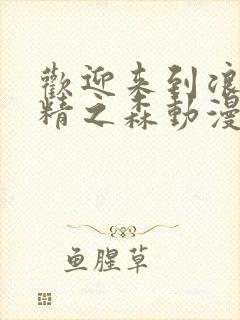 歡迎来到浪
精之森動漫
鱼腥草